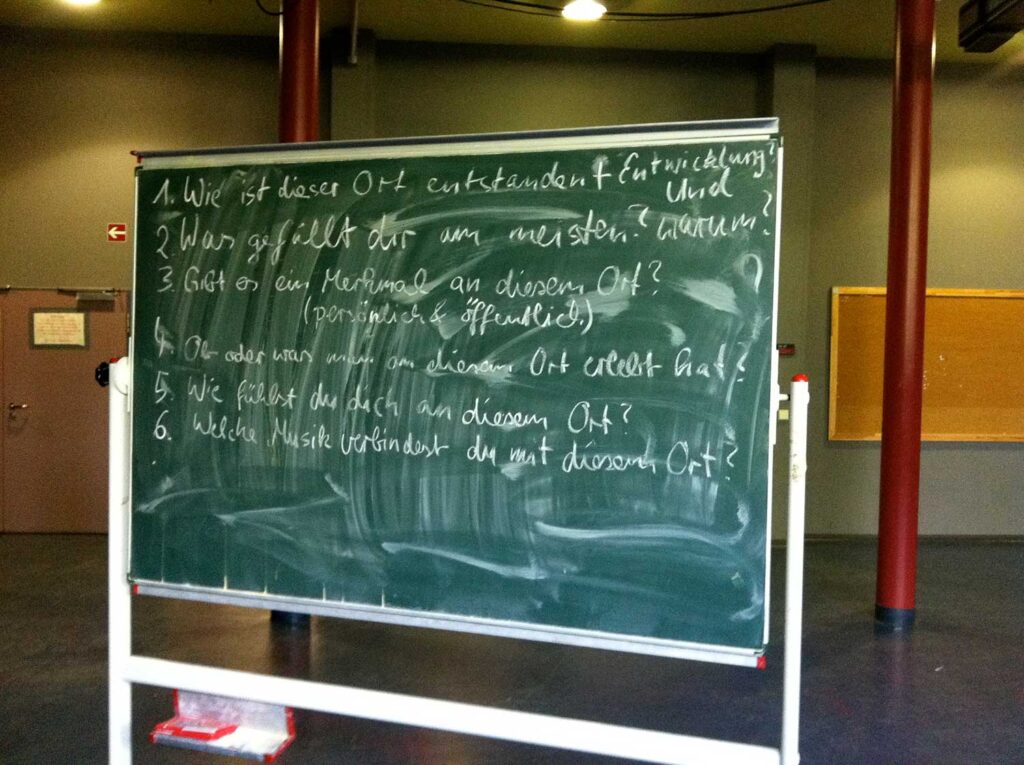 1. Wie ist dieser Ort entstanden + Entwicklung?
2. Was gefällt dir am meisten? Und warum?
3. Gibt es ein Merkmal an diesem Ort?
(persönlich & öffentlich)
4. Ob oder was man an diesem Ort erlebt hat?
5. Wie fühlst du dich an diesem Ort?
6. Welche Musik verbindest du mit diesem Ort?